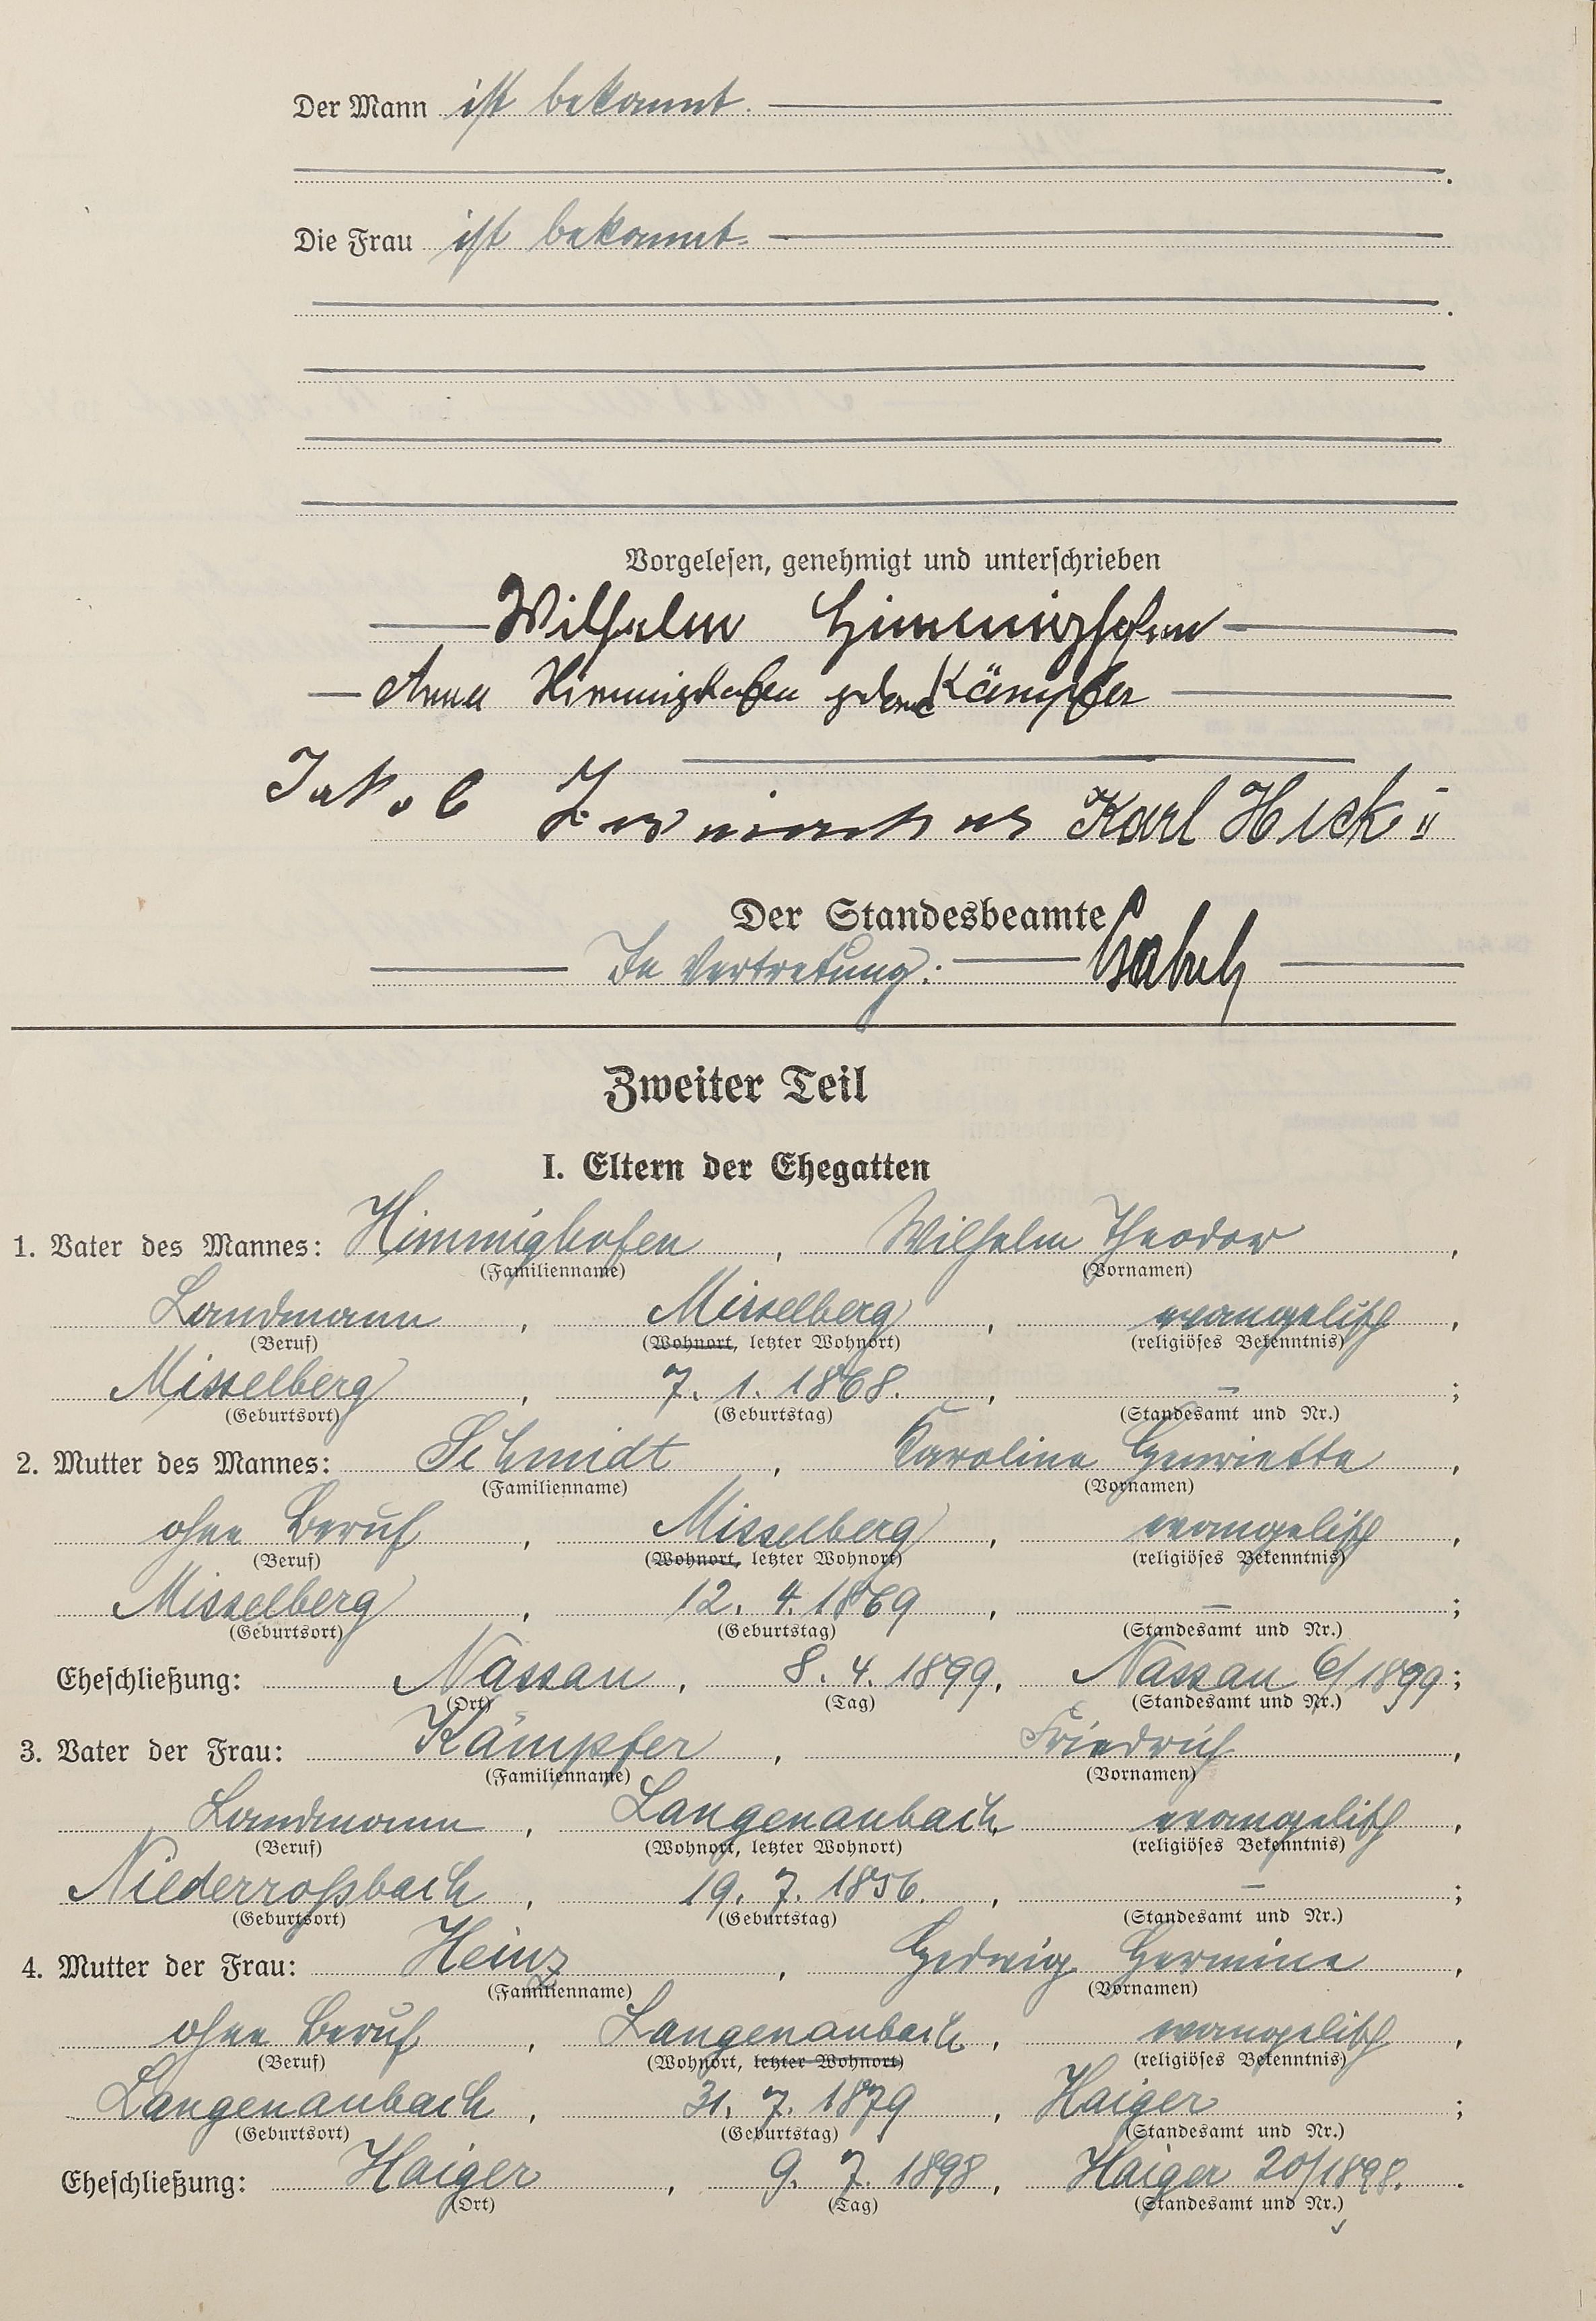 Der Mann ist bekannt.
Die Frau ist bekannt.
Vorgelesen, genehmigt und unterschrieben
Wilhelm Himmighofen
Anna Himmighofen geborene Kämpfer
Jakob Karl Heck II
Der Standesbeamte
In Vertretung:
Zweiter Teil
I. Eltern der Ehegatten
1. Vater des Mannes: Himmighofen, Wilhelm Theodor,
(Familienname) (Vornamen)
Landmann, Misselberg, evangelisch,
(Beruf) (Wohnort, letzter Wohnort) (religiöses Bekenntnis)
Misselberg, 7. 1. 1868., –;
(Geburtsort) (Geburtstag) (Standesamt und Nr.)
2. Mutter des Mannes: Schmidt, Karoline Henriette,
(Familienname) (Vornamen)
ohne Beruf, Misselberg, evangelisch,
(Beruf) (Wohnort, letzter Wohnort) (religiöses Bekenntnis)
Misselberg, 12. 4. 1869, –;
(Geburtsort) (Geburtstag) (Standesamt und Nr.)
Eheschließung: Nassau, 8. 4. 1899, Nassau 6/1899;
(Ort) (Tag) (Standesamt und Nr.)
3. Vater der Frau: Kämpfer, Friedrich,
(Familienname) (Vornamen)
Landmann, Langenaubach, evangelisch,
(Beruf) (Wohnort, letzter Wohnort) (religiöses Bekenntnis)
Niederroßbach, 19. 7. 1856., –;
(Geburtsort) (Geburtstag) (Standesamt und Nr.)
4. Mutter der Frau: Heinz, Hedwig Hermine,
(Familienname) (Vornamen)
ohne Beruf, Langenaubach, evangelisch,
(Beruf) (Wohnort, letzter Wohnort) (religiöses Bekenntnis)
Langenaubach, 31. 7. 1879, Haiger;
(Geburtsort) (Geburtstag) (Standesamt und Nr.)
Eheschließung: Haiger, 9. 7. 1898, Haiger 20/1898.
(Ort) (Tag) (Standesamt und Nr.)